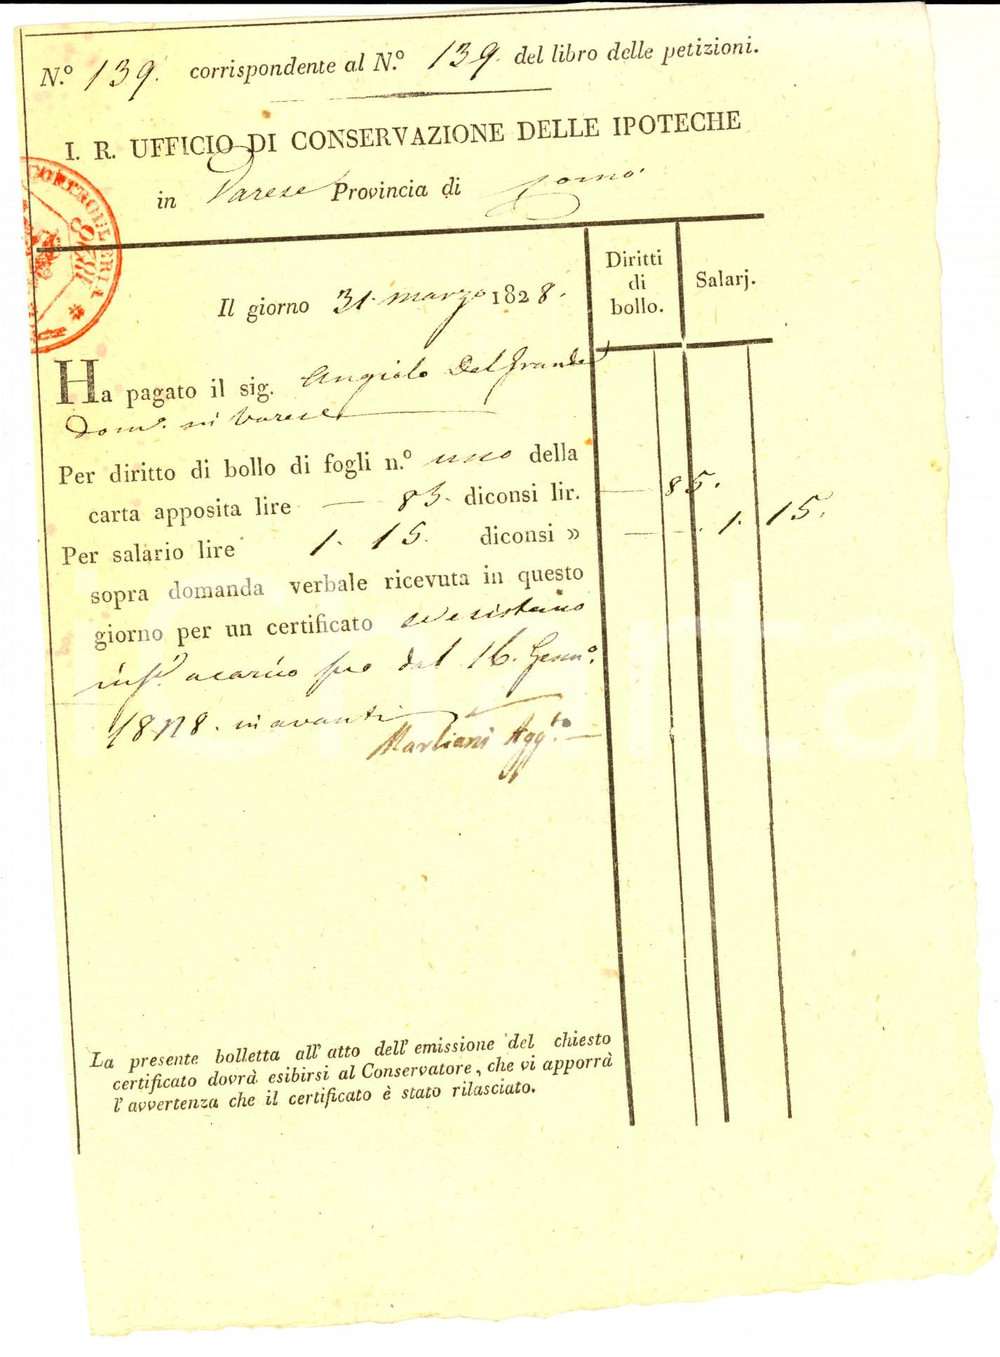 N.º 139. corrispondente al N.º 139. del libro delle petizioni.
I. R. UFFICIO DI CONSERVAZIONE DELLE IPOTECHE
in Varese Provincia di Como
CONTROLLERIA
Diritti di bollo.
Salarj.
Il giorno 31. marzo 1828.
Ha pagato il sig. Angiolo Del Grande
dom.º in Varese
Per diritto di bollo di fogli n.º uno della
carta apposita lire — 85. diconsi lir. — 85.
Per salario lire 1. 15. diconsi » — 1. 15.
sopra domanda verbale ricevuta in questo
giorno per un certificato se esistano
a carico suo dal 16. Genn.º
in avanti
Marliani Agg.to
La presente bolletta all' atto dell' emissione del chiesto
certificato dovrà esibirsi al Conservatore, che vi apporrà
l'avvertenza che il certificato è stato rilasciato.